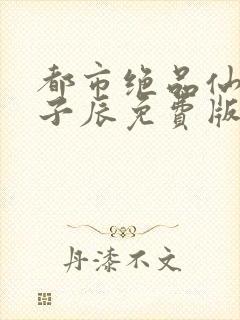 都市绝品仙
子辰免费版
丹漆不文